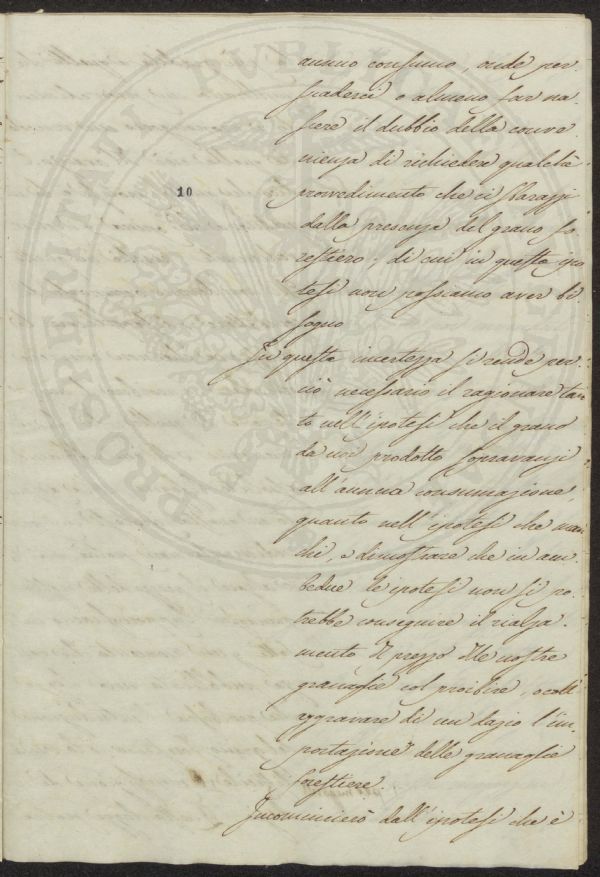 annuo consumo, onde per-
suaderci o almeno far na-
scere il dubbio della conve-
nienza di richiedere qualche
10
provvedimento che ci sbarazzi
dalla presenza del grano fo-
restiero, di cui in questa ipo-
tesi non possiamo aver bi-
sogno
In questa incertezza si rende per-
ciò necessario il ragionare tan-
to nell'ipotesi che il grano
da noi prodotto sopravanzi
all'annua consumazione,
quanto nell'ipotesi che man-
chi, e dimostrare che in am-
bedue le ipotesi non si po-
trebbe conseguire il rialza-
mento del prezzo delle nostre
granaglie col proibire, o coll'
aggravare di un dazio l'im-
portazione delle granaglie
forestiere.
Incomincierò dall'ipotesi che è
PROSPERITATI PUBLICAE